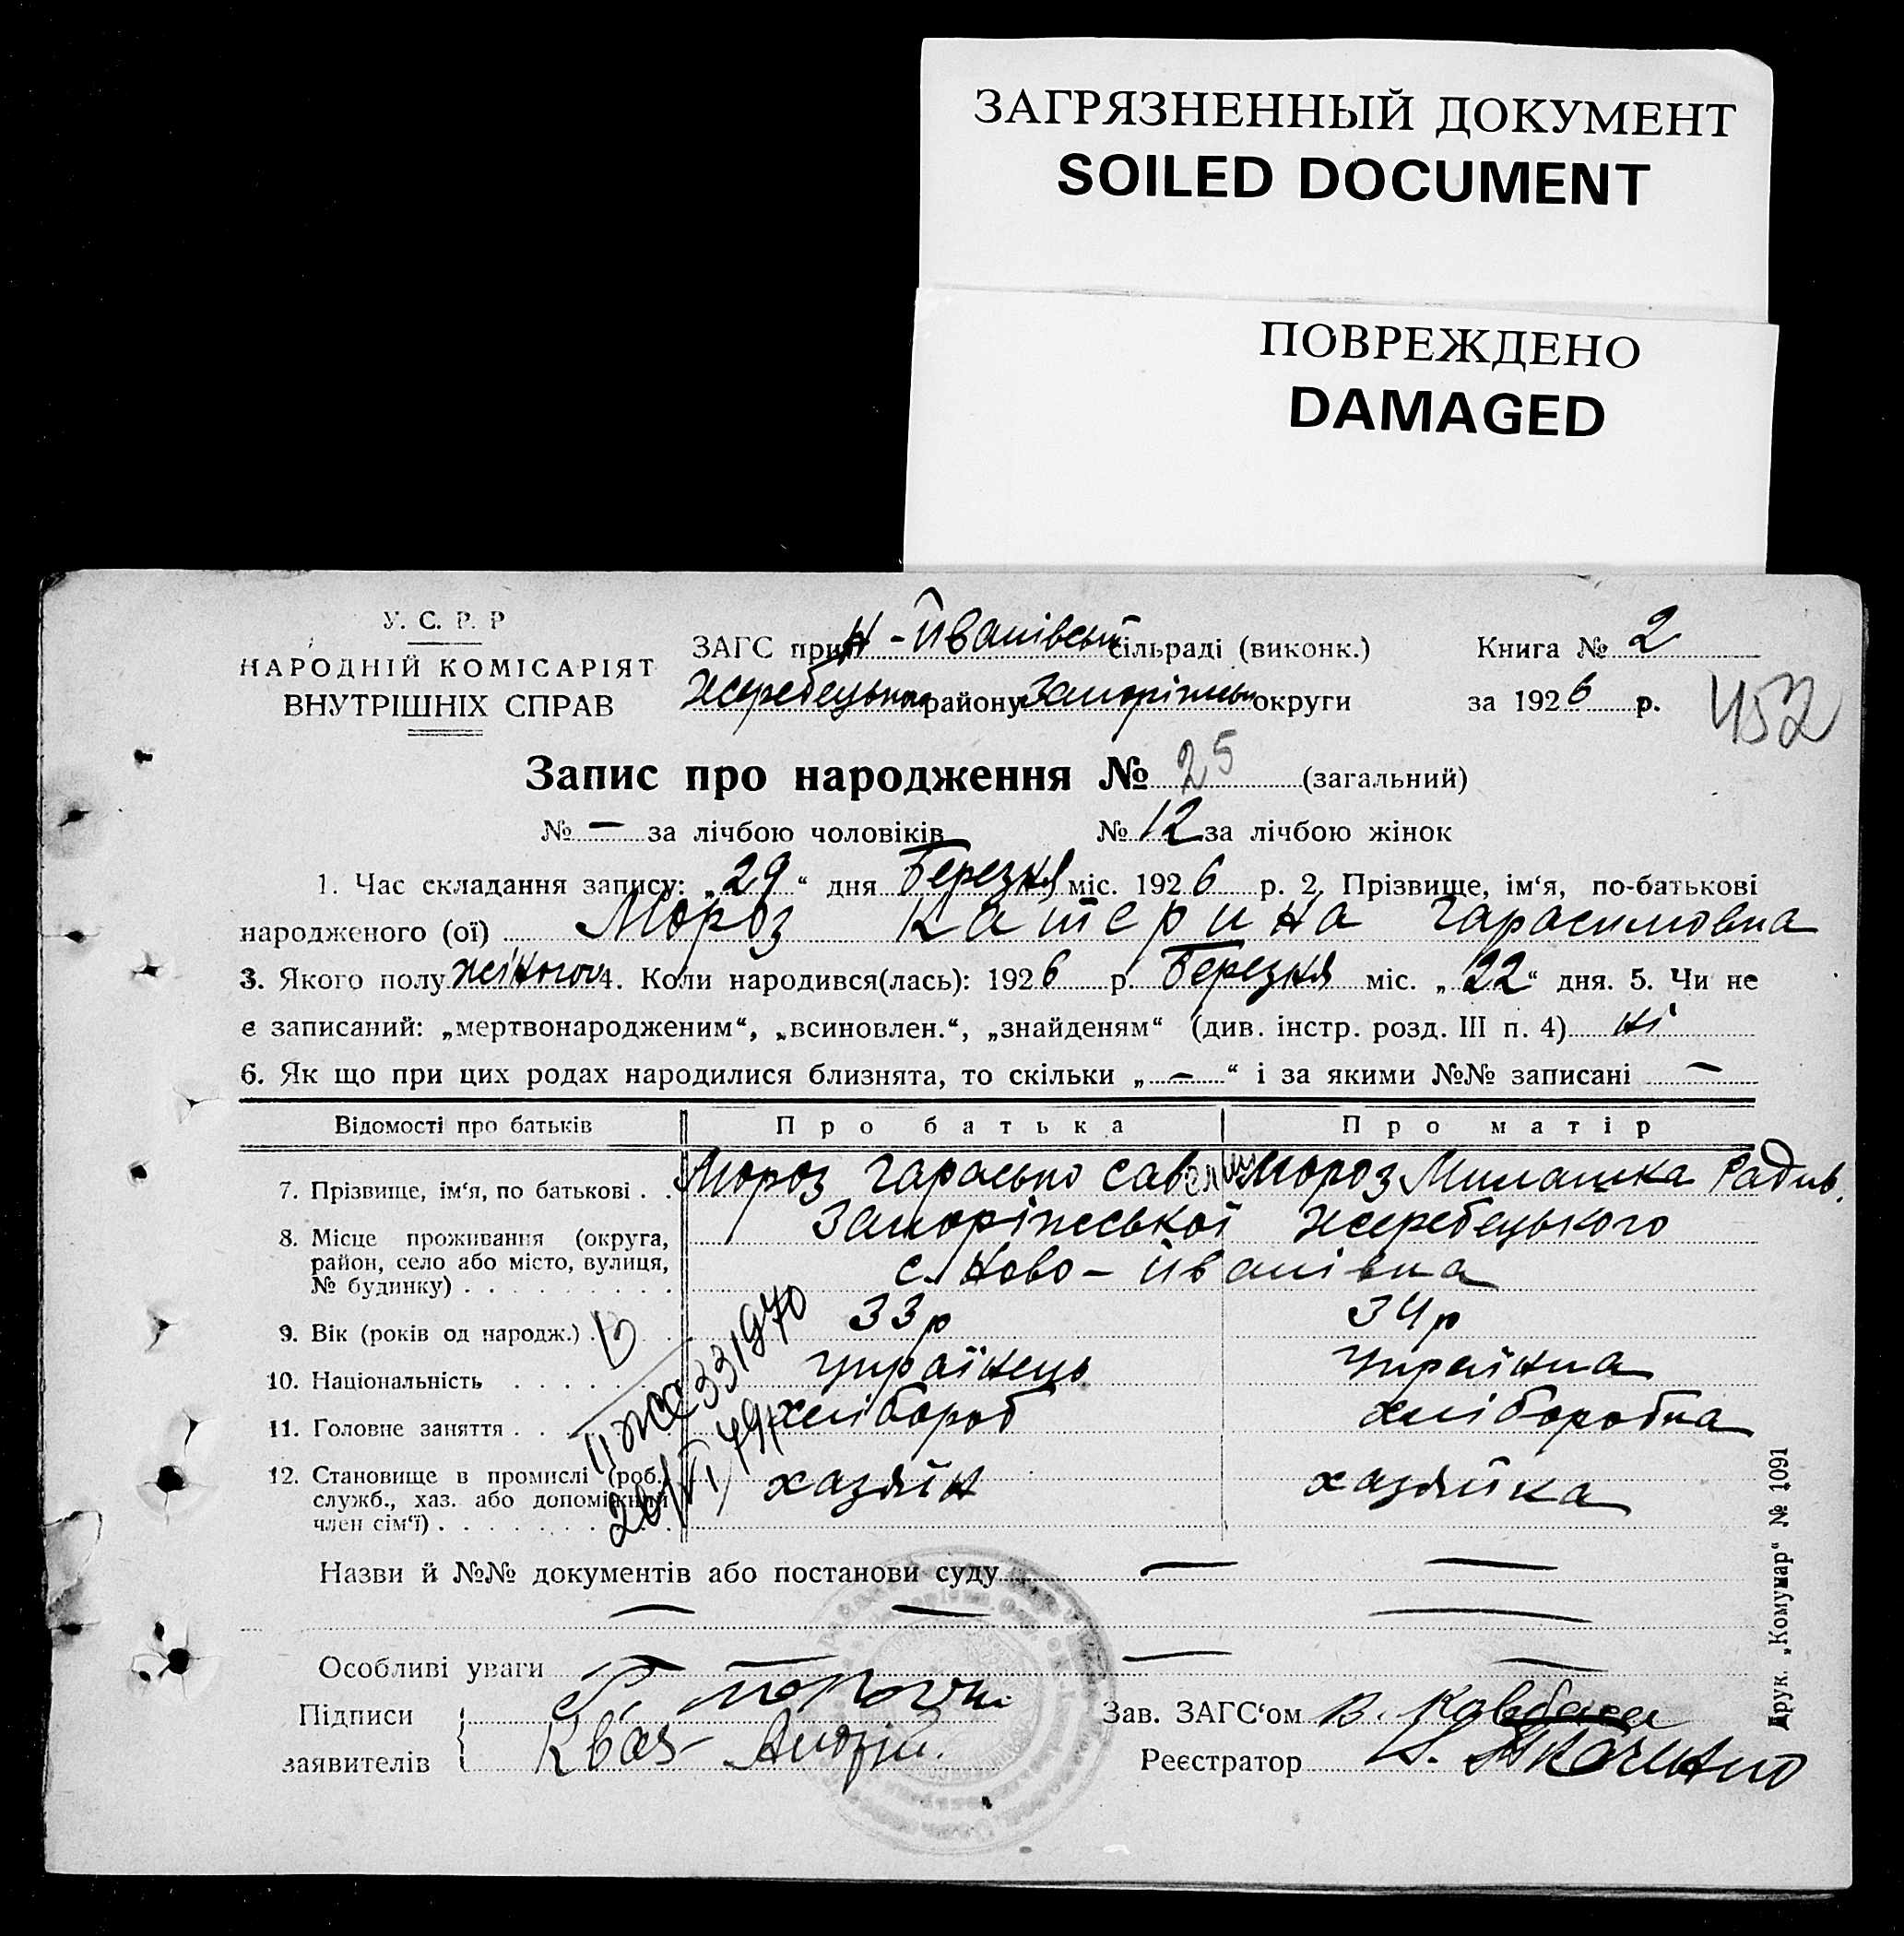 ЗАГРЯЗНЕННЫЙ ДОКУМЕНТ
SOILED DOCUMENT
ПОВРЕЖДЕНО
DAMAGED
У. С. Р. Р
НАРОДНІЙ КОМІСАРІЯТ
ВНУТРІШНІХ СПРАВ
ЗАГС при Н-Йванівській сільраді (виконк.)
Жеребецького району Запоріжськ округи
Книга № 2
за 1926 р.
452
Запис про народження № 25 (загальний)
№ — за лічбою чоловіків № 12 за лічбою жінок
1. Час складання запису: „29“ дня Березня міс. 1926 р. 2. Прізвище, ім‘я, по-батькові
народженого (ої) Мороз Катерина Гарасимовна
3. Якого полу жіночог 4. Коли народився(лась): 1926 р. Березня міс. „22“ дня. 5. Чи не
є записаний: „мертвонародженим“, „всиновлен.“, „знайденям“ (див. інстр. розд. III п. 4) ні
6. Як що при цих родах народилися близнята, то скільки „—“ і за якими №№ записані —
Відомості про батьків Про батька Про матір
7. Прізвище, ім‘я, по батькові . . Мороз Гарасько Савел Мороз Милашка Радив.
8. Місце проживання (округа, Запоріжської Жеребецького
район, село або місто, вулиця, с. Ново-Йванівка
№ будинку) . . . . . . . . .
9. Вік (років од народж.) . . . 33р 34р
10. Національність . . . . . . українець українка
11. Головне заняття . . хлібороб хліборобка
12. Становище в промислі (роб., хазяїн хазяйка
служб., хаз. або допоміжний
член сім‘ї) . . . . . . . . .
331970
Назви й №№ документів або постанови суду — —
— — —
Особливі уваги — — — —
Підписи
заявителів
Квас Андрій.
Зав. ЗАГС‘ом В.
Реєстратор
Друк. „Комунар“ № 1091